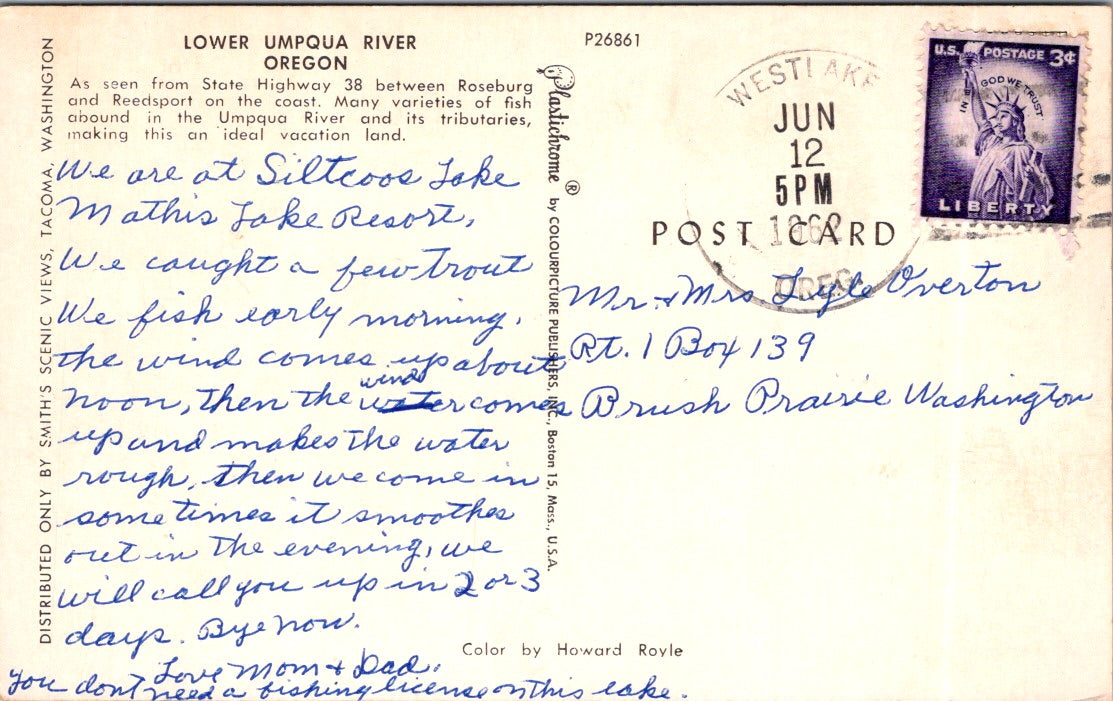 LOWER UMPQUA RIVER
OREGON
As seen from State Highway 38 between Roseburg
and Reedsport on the coast. Many varieties of fish
abound in the Umpqua River and its tributaries,
making this an ideal vacation land.
We are at Siltcoos Lake
Mathis Lake Resort,
We caught a few trout
We fish early morning,
the wind comes up about
noon, then the wind comes
up and makes the water
rough, then we come in
some times it smoothes
out in the evening, we
will call you up in 2 or 3
days. Bye now.
Love Mom & Dad.
You don't need a fishing license on this lake.
DISTRIBUTED ONLY BY SMITH'S SCENIC VIEWS, TACOMA, WASHINGTON
P26861
Plastichrome ® by COLOURPICTURE PUBLISHERS, INC., Boston 15, Mass., U.S.A.
WESTLAKE
JUN
12
5PM
OREG.
U.S. POSTAGE 3¢
IN GOD WE TRUST
LIBERTY
POST CARD
Mr. & Mrs Lyle Overton
Rt. 1 Box 139
Brush Prairie Washington
Color by Howard Royle